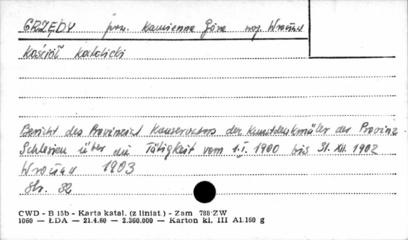 GRZĘDY pow. Kamienna Góra woj. Wrocław
kościół katolicki
Bericht des Provinzial Konservators der Kunstdenkmäler der Provinz
Schlesien über die Tätigkeit vom 1.I. 1900 bis 31. XII. 1902
Wrocław 1903
Str. 82
CWD - B 15b - Karta katal. (z liniat.) - Zam 788/ZW
1060 — ŁDA — 21.4.60 — 2.360.000 — Karton kl. III A1.160 g